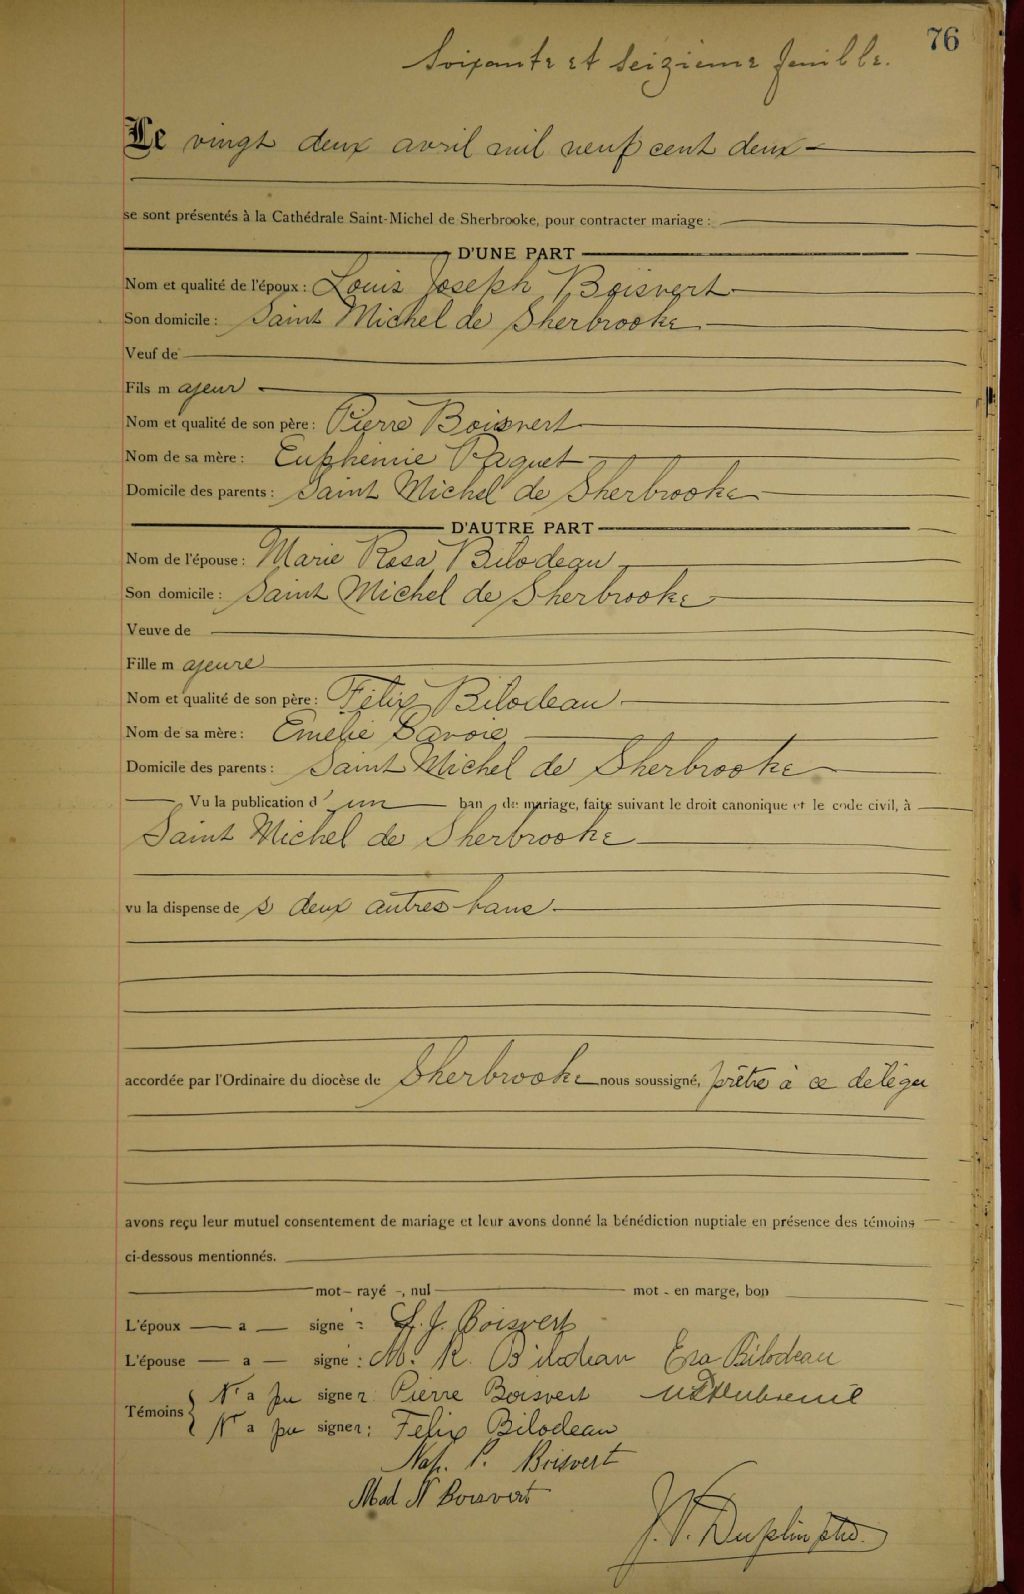 76
Soixante et seizième feuille.
Le vingt deux avril mil neuf cent deux
se sont présentés à la Cathédrale Saint-Michel de Sherbrooke, pour contracter mariage :
D'UNE PART
Nom et qualité de l'époux : Louis Joseph Boisvert
Son domicile : Saint Michel de Sherbrooke
Veuf de
Fils majeur
Nom et qualité de son père : Pierre Boisvert
Nom de sa mère : Euphémie Paquet
Domicile des parents : Saint Michel de Sherbrooke
D'AUTRE PART
Nom de l'épouse : Marie Rosa Bilodeau
Son domicile : Saint Michel de Sherbrooke
Veuve de
Fille majeure
Nom et qualité de son père : Félix Bilodeau
Nom de sa mère : Emélie Savoie
Domicile des parents : Saint Michel de Sherbrooke
Vu la publication d'un ban de mariage, faite suivant le droit canonique et le code civil, à
Saint Michel de Sherbrooke
vu la dispense des deux autres bans
accordée par l'Ordinaire du diocèse de Sherbrooke nous soussigné, prêtre à ce délégu
avons reçu leur mutuel consentement de mariage et leur avons donné la bénédiction nuptiale en présence des témoins
ci-dessous mentionnés.
mot - rayé -, nul mot - en marge, bon
L'époux a signé : L. J. Boisvert
L'épouse a signé : M. R. Bilodeau Eva Bilodeau
Témoins { N'a pu signer Pierre Boisvert
N'a pu signer ; Félix Bilodeau
Nap. P. Boisvert
Mad N Boisvert
J. V. Duplin ptre.